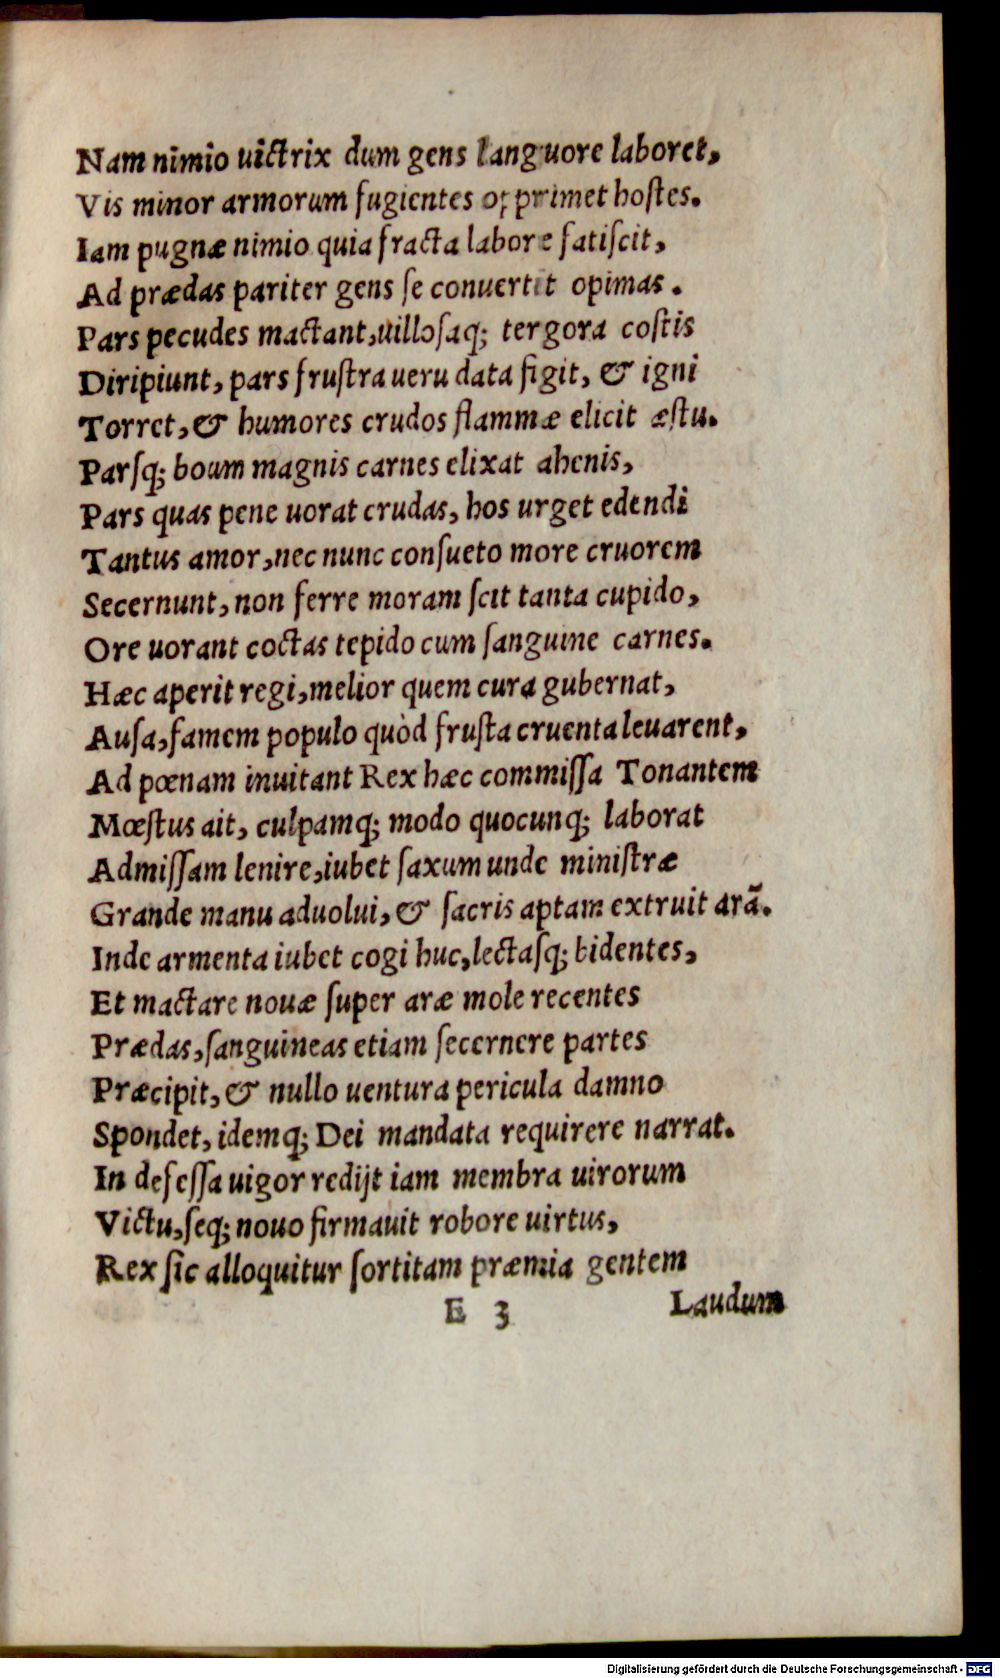 Nam nimio uictrix dum gens languore laboret,
Vis minor armorum fugientes opprimet hostes.
Iam pugnæ nimio quia fracta labore fatiſcit,
Ad prædas pariter gens ſe conuertit opimas.
Pars pecudes mactant,uilloſaq; tergora coſtis
Diripiunt, pars fruſtra ueru data figit, & igni
Torret,& humores crudos flammæ elicit æſtu.
Parſq; boum magnis carnes elixat ahenis,
Pars quas pene uorat crudas, hos urget edendi
Tantus amor,nec nunc conſueto more cruorem
Secernunt,non ferre moram ſcit tanta cupido,
Ore uorant coctas tepido cum ſanguine carnes.
Hæc aperit regi,melior quem cura gubernat,
Auſa,famem populo quòd fruſta cruenta leuarent,
Ad pœnam inuitant Rex hæc commiſſa Tonantem
Mœſtus ait, culpamq; modo quocunq; laborat
Admiſſam lenire,iubet ſaxum unde miniſtræ
Grande manu aduolui,& ſacris aptam extruit arā.
Inde armenta iubet cogi huc,lectaſq; bidentes,
Et mactare nouæ ſuper aræ mole recentes
Prædas,ſanguineas etiam ſecernere partes
Præcipit,& nullo uentura pericula damno
Spondet,idemq; Dei mandata requirere narrat.
In defeſſa uigor redijt iam membra uirorum
Victu,ſeq; nouo firmauit robore uirtus,
Rex ſic alloquitur ſortitam præmia gentem
E 3 Laudum
Digitalisierung gefördert durch die Deutsche Forschungsgemeinschaft - DFG